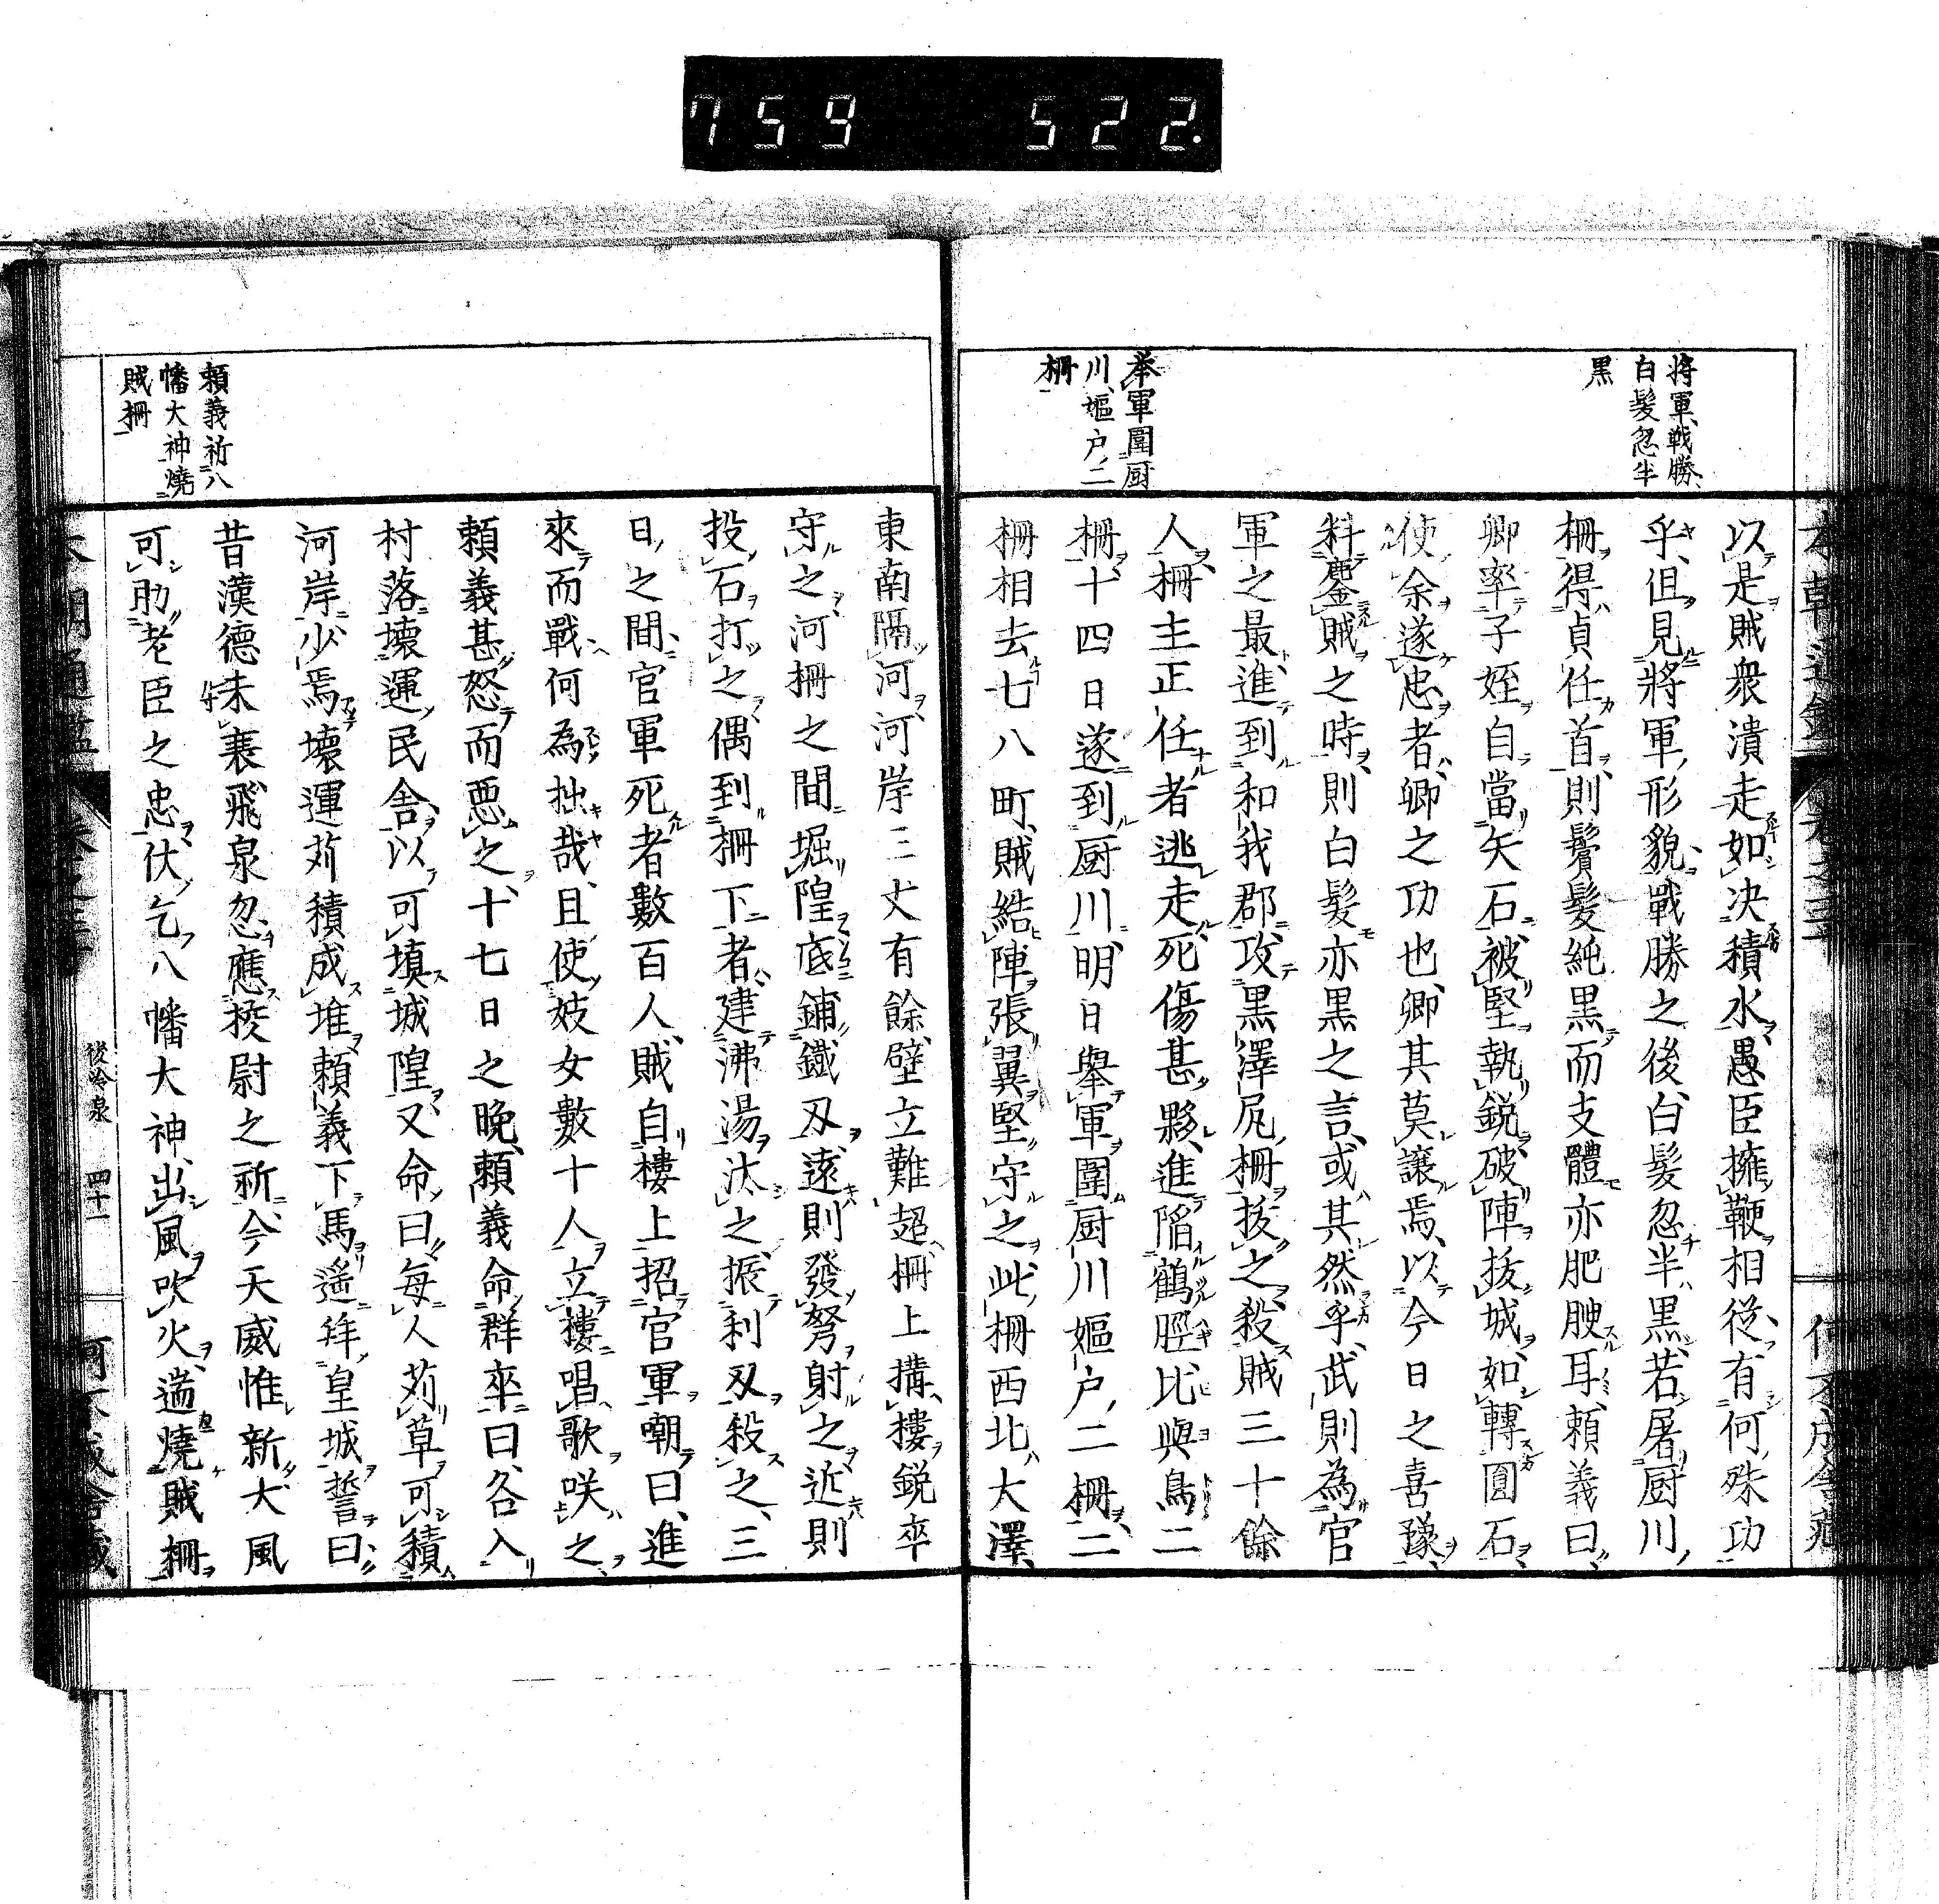 759 522.
將軍戰勝
白髮忽半
黑
舉軍圍厨
川嫗户二
柵
以是賊衆潰走如决積水愚臣擁鞭相從有何殊功
乎但見將軍形貌戰勝之後白髮忽半黑若屠厨川
柵得貞任首則鬢髮純黒而支體亦肥腴耳頼義曰
卿率子姪自當矢石被堅執鋭破陣拔城如轉圓石
使余遂忠者卿之功也卿其莫讓焉以今日之喜豫
料鏖賊之時則白髮亦黒之言或其然乎武則為官
軍之最進到和我郡攻黒澤尻柵拔之殺賊三十餘
人柵主正任者逃走死傷甚夥進陷鶴脛比與鳥二
柵十四日遂到厨川明日舉軍圍厨川嫗户二柵二
柵相去七八町賊結陣張翼堅守之此柵西北大澤
東南隔河河岸三丈有餘壁立難超柵上搆樓鋭卒
守之河柵之間堀隍底鋪鐵刄遠則發弩射之近則
投石打之偶到柵下者建沸湯汰之振利刄殺之三
日之間官軍死者數百人賊自樓上招官軍嘲曰進
來而戰何為拙哉且使妓女數十人立樓唱歌咲之
頼義甚怒而悪之十七日之晩頼義命群卒曰各入
村落壊運民舎以可填城隍又命曰毎人苅草可積
河岸少焉壊運苅積成堆頼義下馬遙拜皇城誓曰
昔漢德未衰飛泉忽應挍尉之祈今天威惟新大風
可助老臣之忠伏乞八幡大神出風吹火遄燒賊柵
頼義祈八
幡大神燒
賊柵
後冷泉 四十一